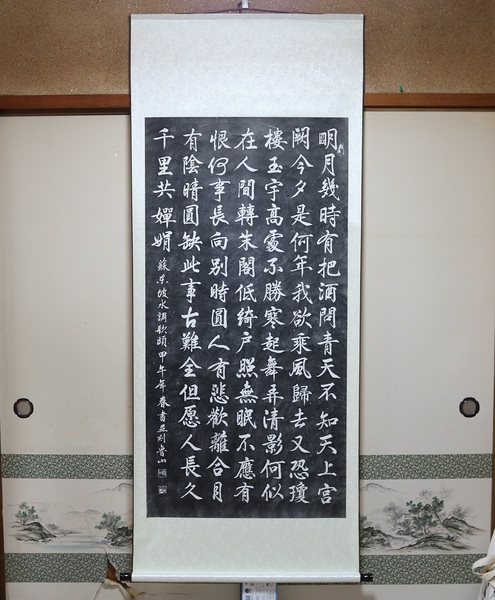 明月幾時有把酒問青天不知天上宮
闕今夕是何年我欲乘風歸去又恐瓊
樓玉宇高處不勝寒起舞弄清影何似
在人間轉朱閣低綺户照無眠不應有
恨何事長向别時圓人有悲歡離合月
有陰晴圓缺此事古難全但愿人長久
千里共嬋娟 蘇东坡水調歌頭甲午年春書并刻魯山